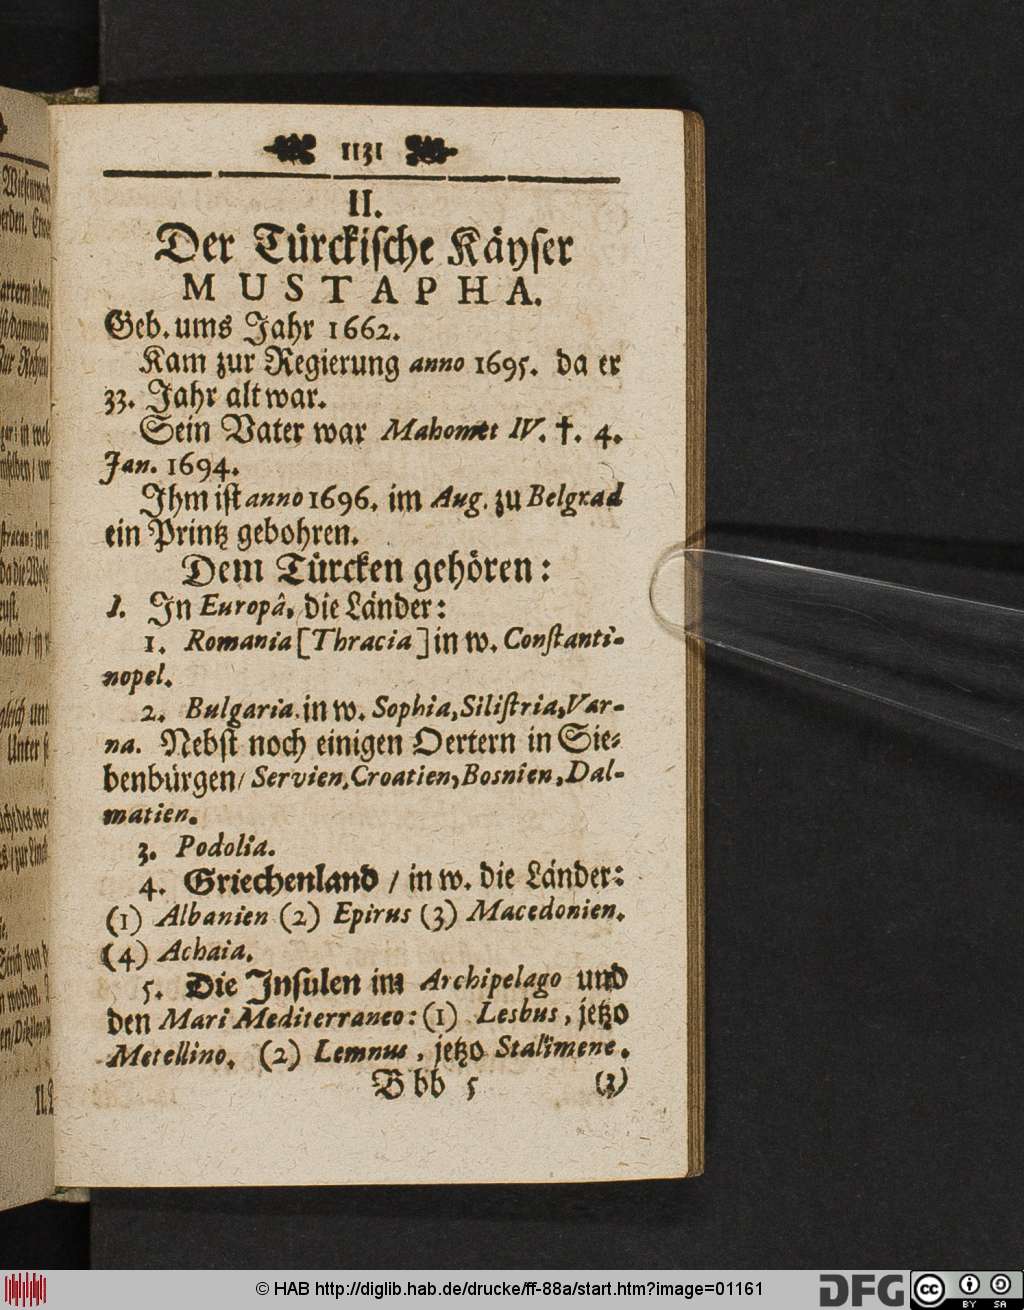 1131
II.
Der Türckische Käyser
MUSTAPHA.
Geb. ums Jahr 1662.
Kam zur Regierung anno 1695. da er
33. Jahr alt war.
Sein Vater war Mahomet IV. †. 4.
Jan. 1694.
Ihm ist anno 1696. im Aug. zu Belgrad
ein Printz gebohren.
Dem Türcken gehören:
I. In Europâ, die Länder:
1. Romania [Thracia] in w. Constanti-
nopel.
2. Bulgaria. in w. Sophia, Silistria, Var-
na. Nebst noch einigen Oertern in Sie-
benbürgen/ Servien, Croatien, Bosnien, Dal-
matien.
3. Podolia.
4. Griechenland / in w. die Länder:
(1) Albanien (2) Epirus (3) Macedonien.
(4) Achaia.
5. Die Insulen im Archipelago und
den Mari Mediterraneo: (1) Lesbus, jetzo
Metellino. (2) Lemnus, jetzo Stalimene.
Bbb 5 (3)
© HAB http://diglib.hab.de/drucke/ff-88a/start.htm?image=01161
DFG
cc BY SA